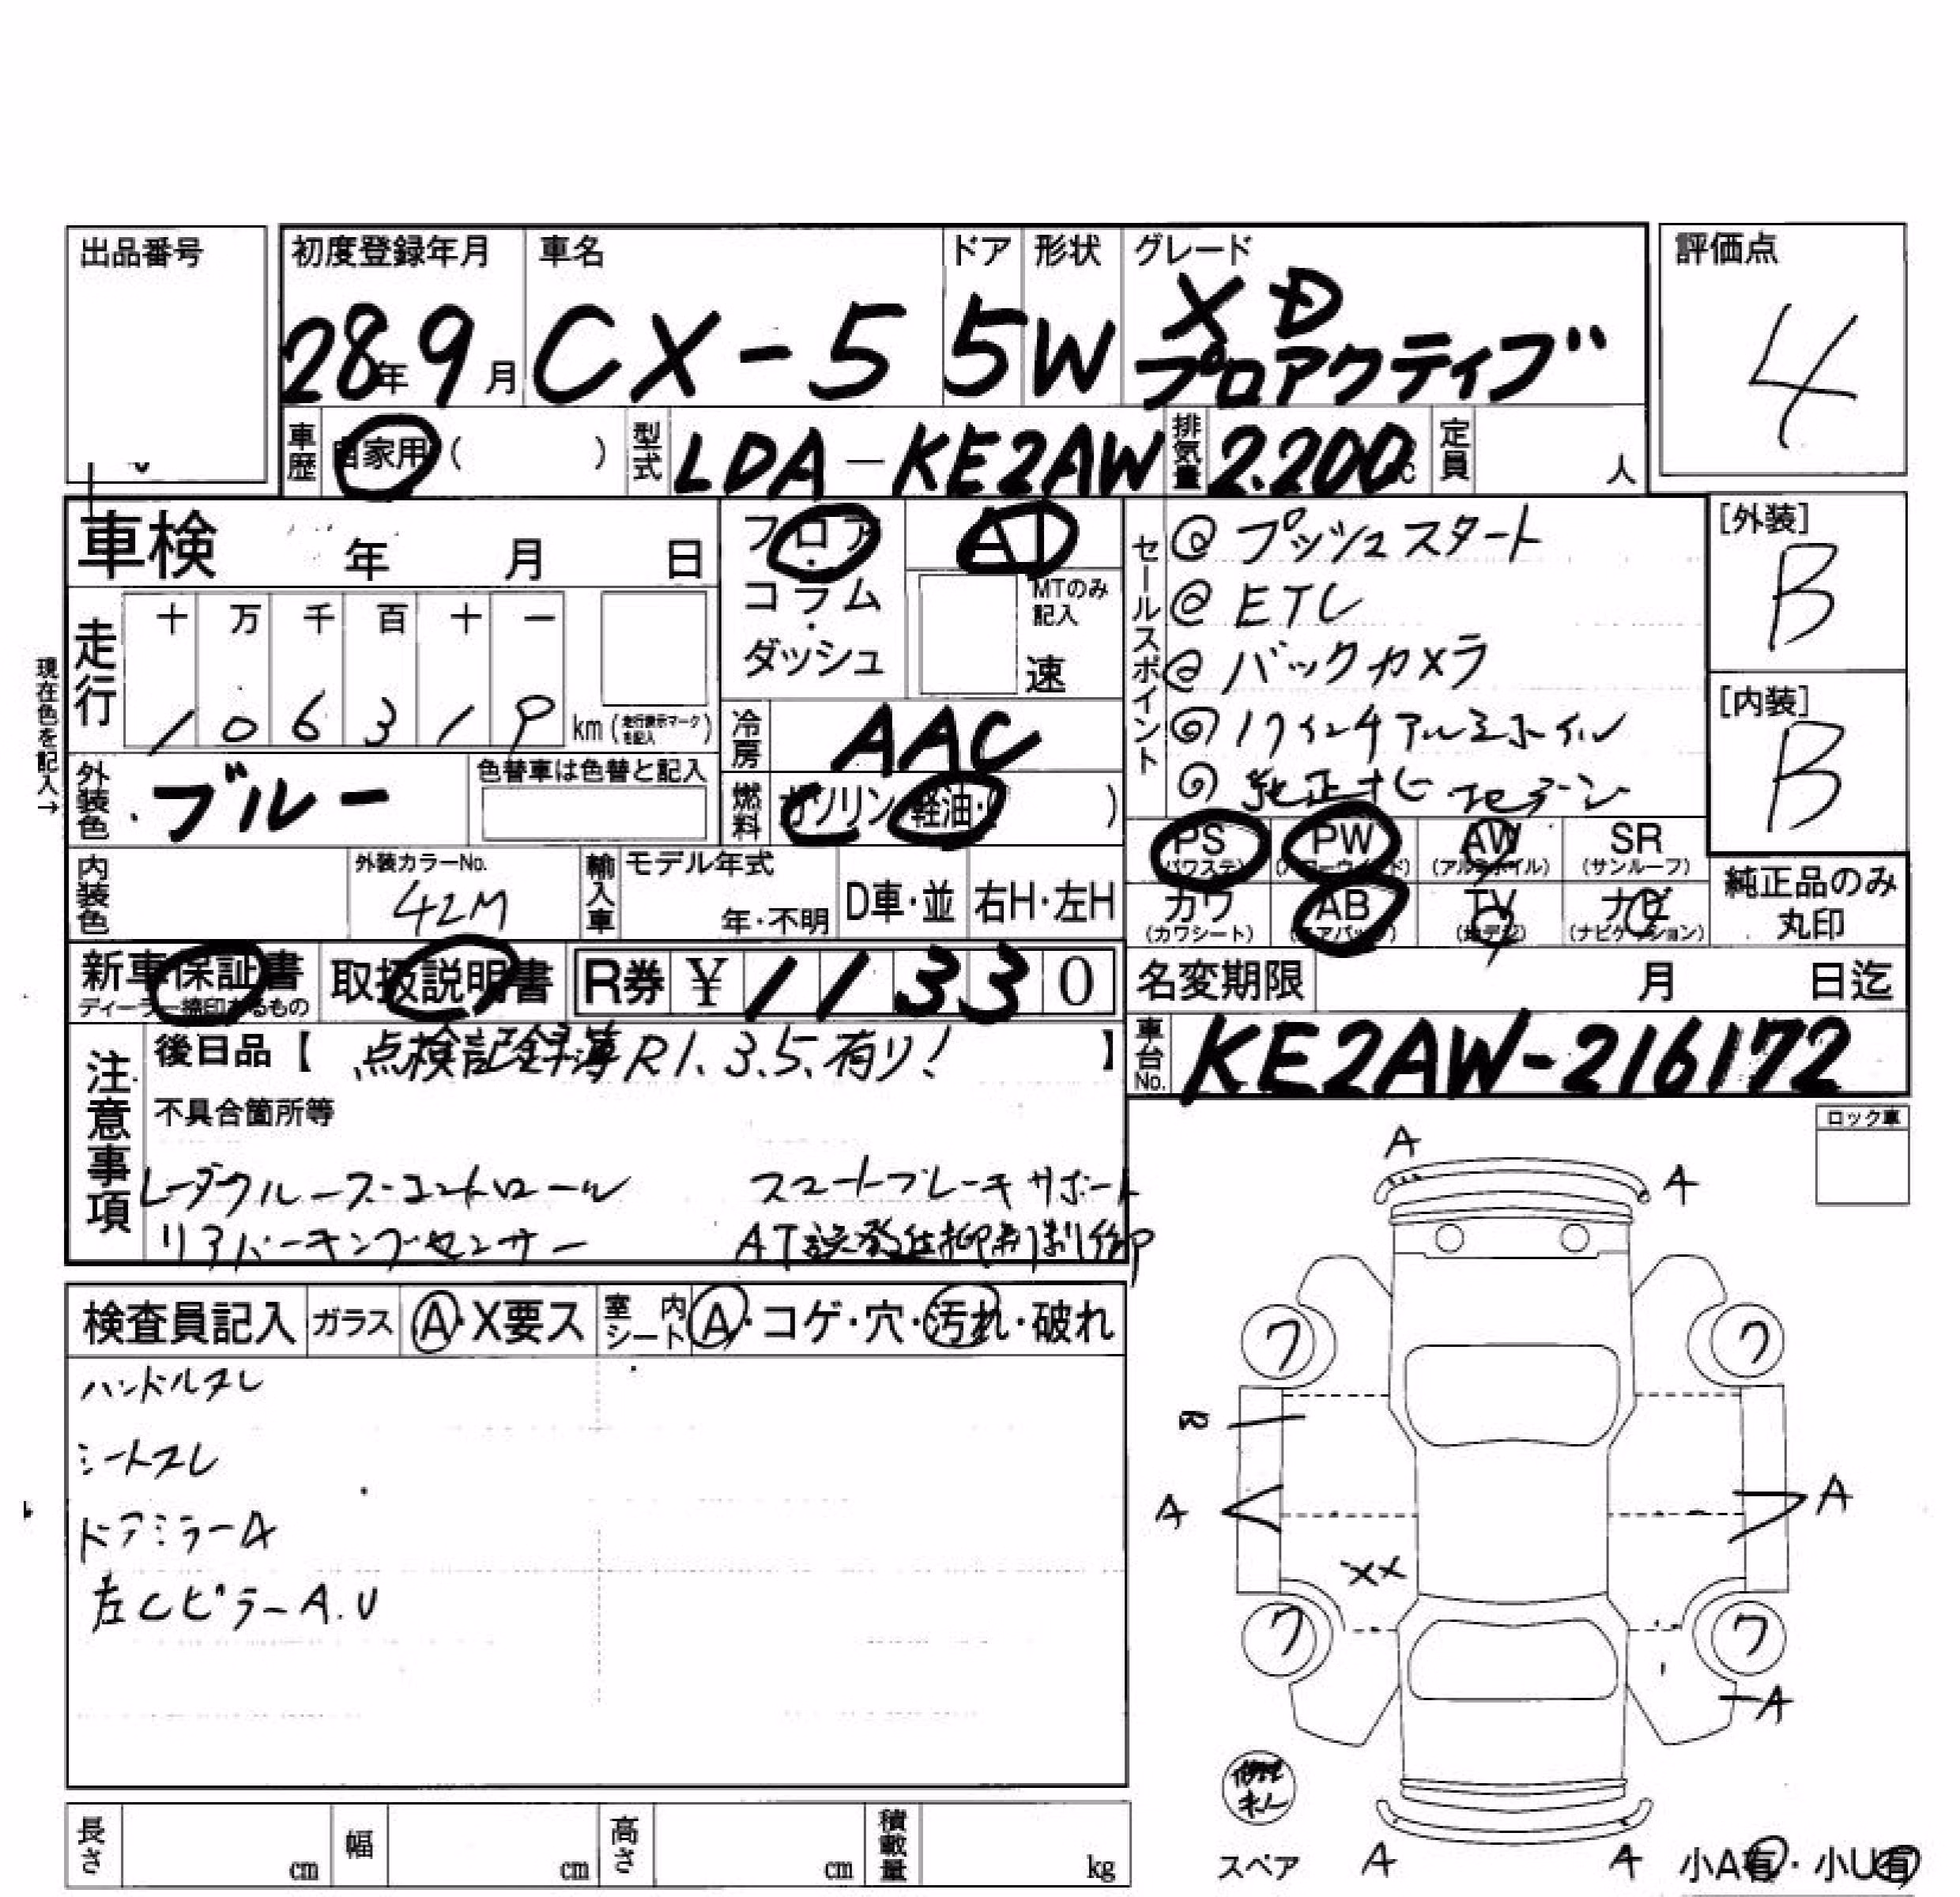 出品番号
初度登録年月 車名 ドア 形状 グレード 評価点
28年9月 CX-5 5 W XD プロアクティブ 4
車歴 自家用( ) 型式 LDA-KE2AW 排気量 2.200cc 定員 人
車検 年 月 日
フロア・コラム・ダッシュ
AT
MTのみ記入
速
走行 十 万 千 百 十 一
1 0 6 3 1 9 km (走行表示マークを記入)
現在色を記入→
冷房 AAC
外装色 ブルー 色替車は色替と記入
燃料 ガソリン・軽油・( )
内装色 外装カラーNo. 42M 輸入車 モデル年式 年・不明 D車・並 右H・左H
新車保証書 ディーラー捺印あるもの 取扱説明書 R券 ¥11330
セールスポイント
@ プッシュスタート
@ ETC
@ バックカメラ
@ 17インチアルミホイル
@ 純正ナビ 地デジ
[外装] B
[内装] B
PS (パワステ) PW (パワーウインド) AW (アルミホイル) SR (サンルーフ)
カワ (カワシート) AB (エアバッグ) TV (地デジ) ナビ (ナビゲーション)
純正品のみ丸印
名変期限 月 日迄
車台No. KE2AW-216172
注意事項
後日品【 点検記録簿R1.3.5.有り! 】
不具合箇所等
レーダクルーズコントロール スマートブレーキサポート
リアパーキングセンサー AT誤発進抑制制御
ロック車
検査員記入 ガラス A・X要ス 室内シート A・コゲ・穴・汚れ・破れ
ハンドルスレ
シートスレ
ドアミラーA
左CピラーA.U
A
A
ワ ワ
A A
XX
ワ ワ
A
スペア A A 小A有・小U有
長さ cm 幅 cm 高さ cm 積載量 kg